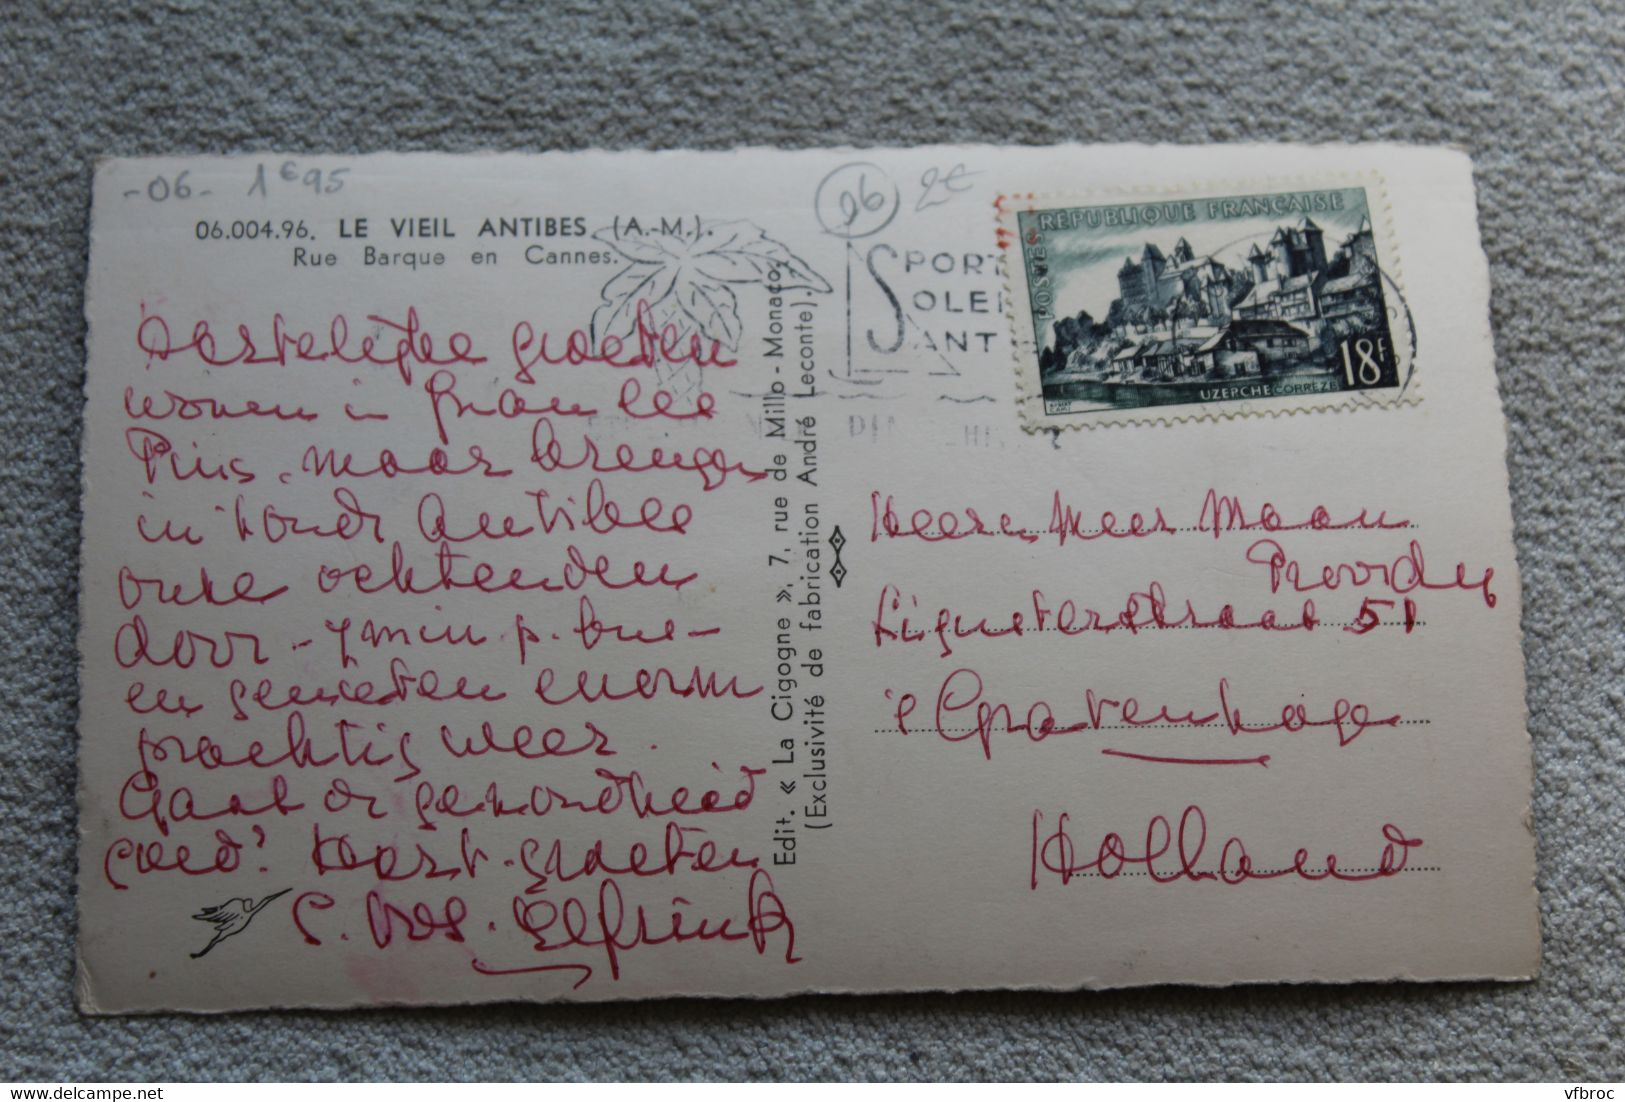 -06- 1€95
06.004.96. LE VIEIL ANTIBES (A.-M.).
Rue Barque en Cannes.
Hartelijke groeten
wonen in Juan les
Pins. maar brengen
in 't oude Antibes
onze ochtenden
door - 7 min p. bus -
en genieten enorm
prachtig weer.
Gaat de gezondheid
goed? Hart. groeten
C. Vos. Elfrink
Edit. « La Cigogne », 7, rue de Millo - Monaco.
(Exclusivité de fabrication André Leconte).
06 2€
SPORT
SOLEI
SANT
POSTES RÉPUBLIQUE FRANÇAISE
18F
UZERCHE CORRÈZE
Heer en Mevr
51
's Gravenhage
Holland
vfbroc
delcampe.net